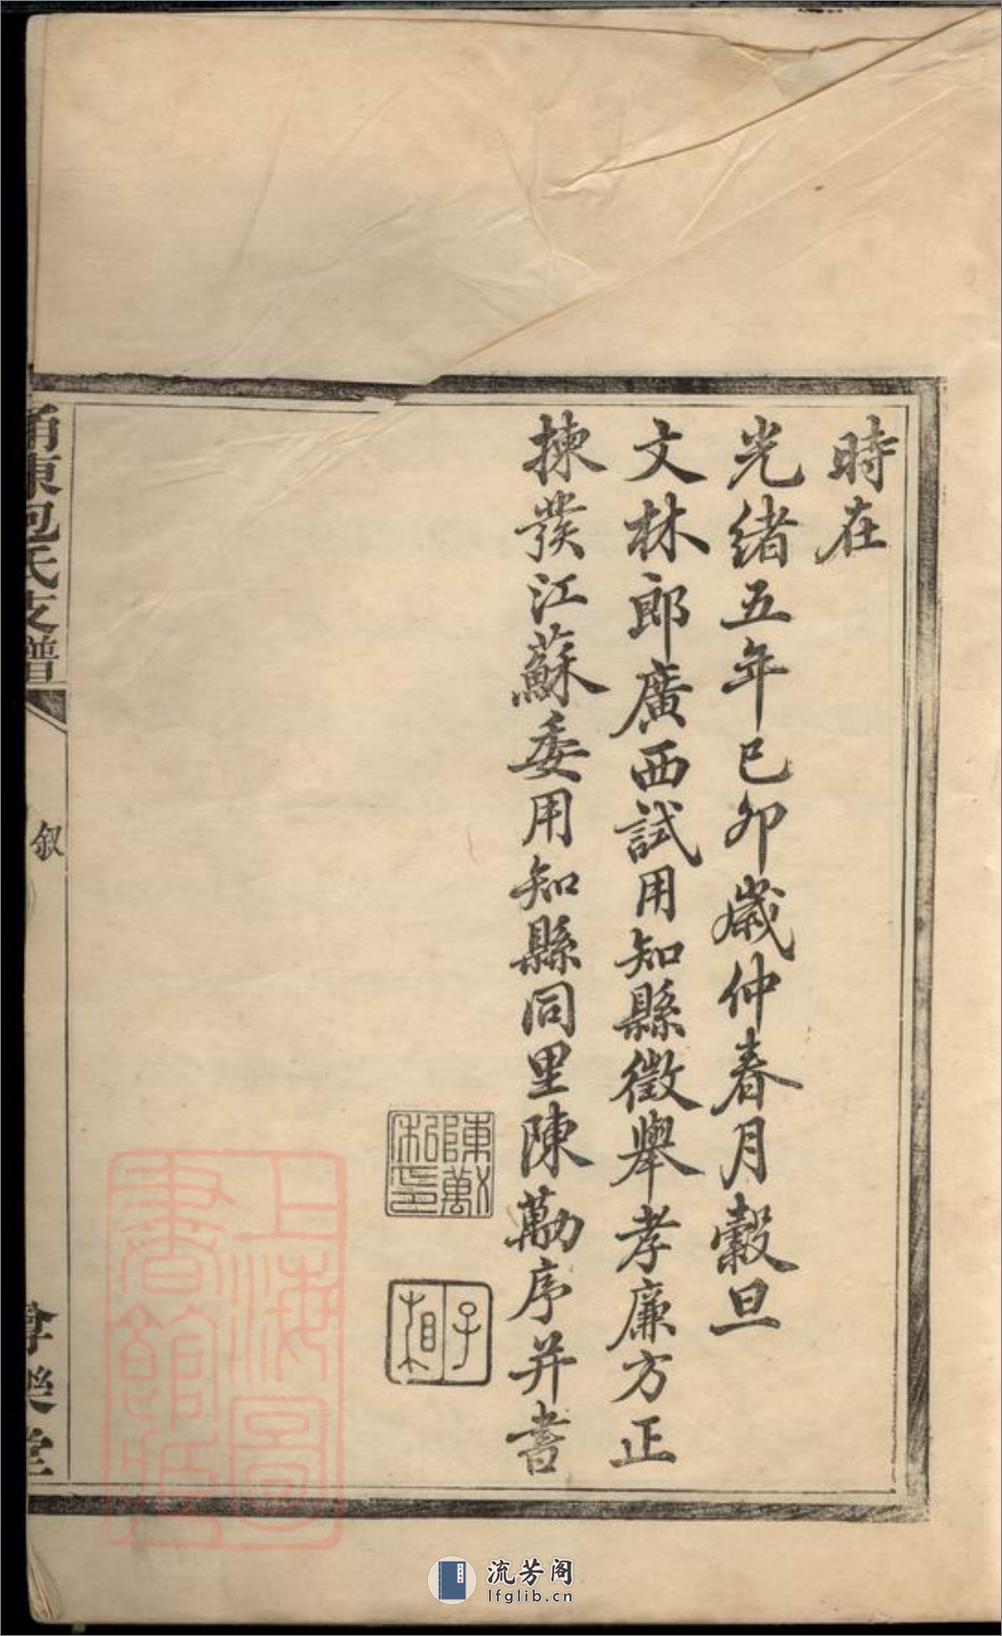 時在
光緒五年己卯歲仲春月穀旦
文林郎廣西試用知縣徵舉孝廉方正
揀發江蘇委用知縣同里陳勱序并書
陳勱私印
子相
甬東包氏支譜
叙
樂堂
上海圖書館藏
流芳阁
lfglib.cn